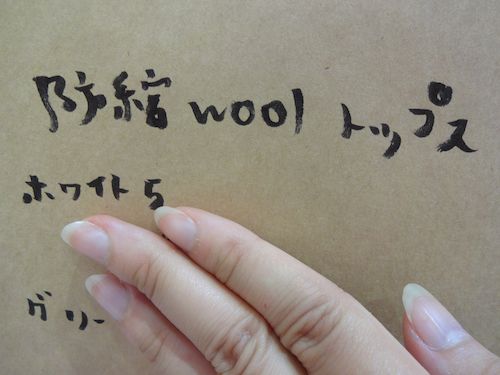 防縮 wool トップス
ホワイト 5
グリー